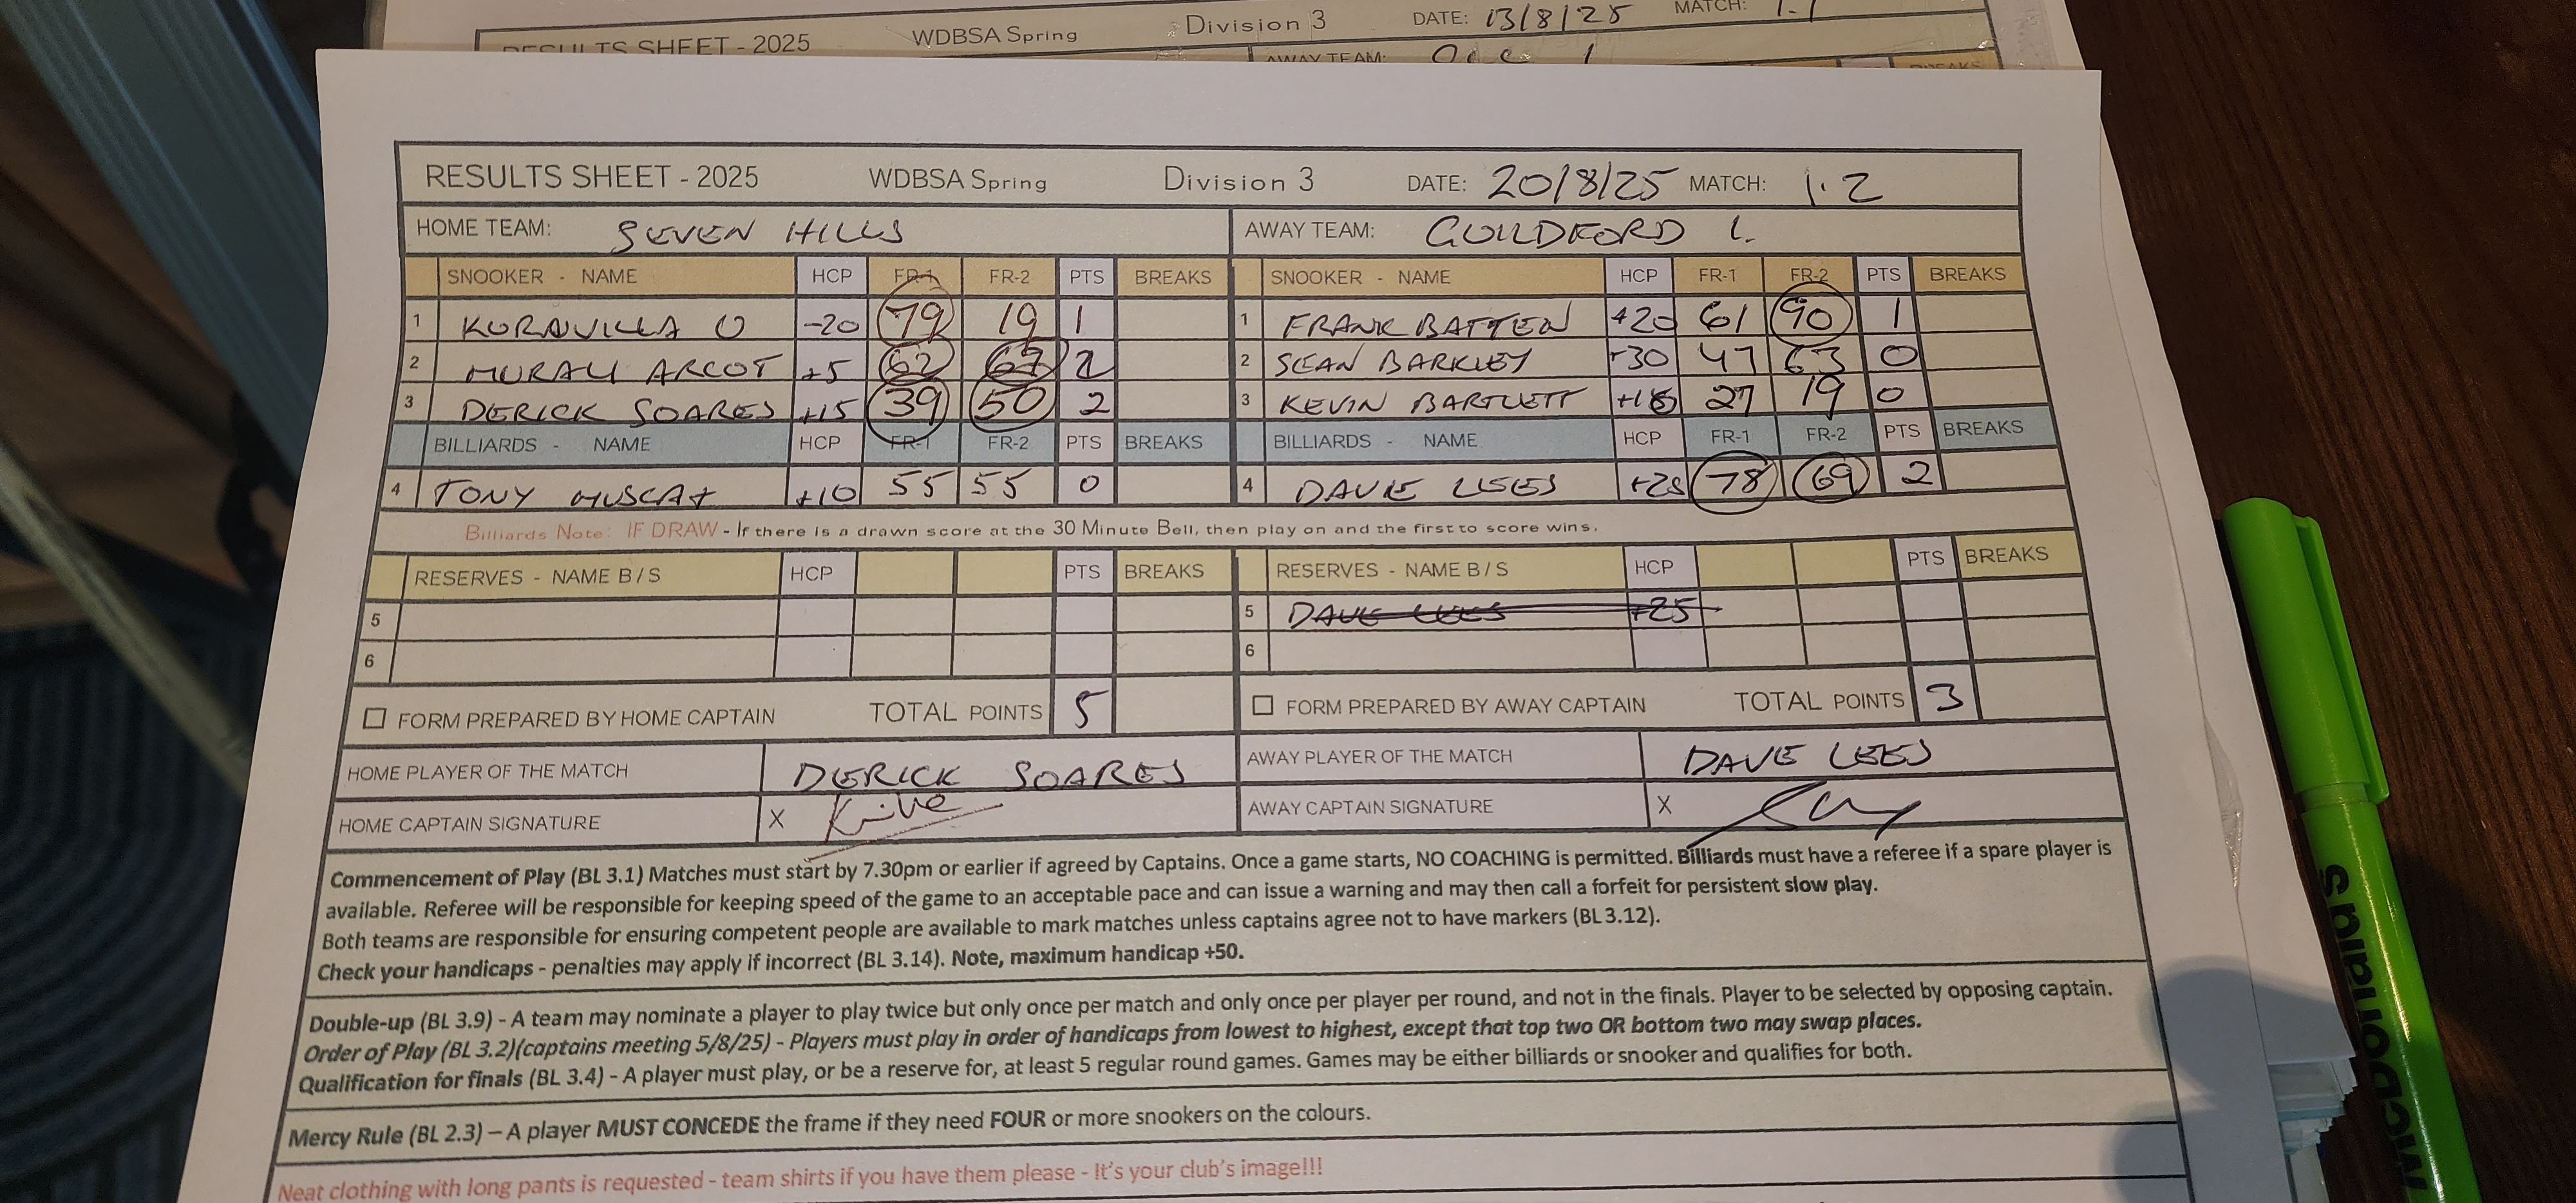 RESULTS SHEET - 2025 WDBSA Spring Division 3 DATE: 13/8/25 MATCH: 1.1
AWAY TEAM: BREAKS
RESULTS SHEET - 2025 WDBSA Spring Division 3 DATE: 20/8/25 MATCH: 1.2
HOME TEAM: SEVEN HILLS AWAY TEAM: GUILDFORD 1.
SNOOKER - NAME HCP FR-1 FR-2 PTS BREAKS SNOOKER - NAME HCP FR-1 FR-2 PTS BREAKS
1 KURAVILLA O -20 79 19 1 1 FRANK BATTEN +20 61 90 1
2 MURALI ARCOT +5 62 67 2 2 SEAN BARKLEY +30 47 63 0
3 DERICK SOARES +15 39 50 2 3 KEVIN BARTLETT 27 19 0
BILLIARDS - NAME HCP FR-1 FR-2 PTS BREAKS BILLIARDS - NAME HCP FR-1 FR-2 PTS BREAKS
4 TONY MUSCAT +10 55 55 0 4 DAVE LEES +25 78 69 2
Billiards Note: IF DRAW - If there is a drawn score at the 30 Minute Bell, then play on and the first to score wins.
RESERVES - NAME B / S HCP PTS BREAKS RESERVES - NAME B / S HCP PTS BREAKS
5 5 DAVE LEES +25
6 6
FORM PREPARED BY HOME CAPTAIN TOTAL POINTS 5 FORM PREPARED BY AWAY CAPTAIN TOTAL POINTS 3
HOME PLAYER OF THE MATCH DERICK SOARES AWAY PLAYER OF THE MATCH DAVE LEES
HOME CAPTAIN SIGNATURE X AWAY CAPTAIN SIGNATURE X
Commencement of Play (BL 3.1) Matches must start by 7.30pm or earlier if agreed by Captains. Once a game starts, NO COACHING is permitted. Billiards must have a referee if a spare player is
available. Referee will be responsible for keeping speed of the game to an acceptable pace and can issue a warning and may then call a forfeit for persistent slow play.
Both teams are responsible for ensuring competent people are available to mark matches unless captains agree not to have markers (BL 3.12).
Check your handicaps - penalties may apply if incorrect (BL 3.14). Note, maximum handicap +50.
Double-up (BL 3.9) - A team may nominate a player to play twice but only once per match and only once per player per round, and not in the finals. Player to be selected by opposing captain.
Order of Play (BL 3.2)(captains meeting 5/8/25) - Players must play in order of handicaps from lowest to highest, except that top two OR bottom two may swap places.
Qualification for finals (BL 3.4) - A player must play, or be a reserve for, at least 5 regular round games. Games may be either billiards or snooker and qualifies for both.
Mercy Rule (BL 2.3) – A player MUST CONCEDE the frame if they need FOUR or more snookers on the colours.
Neat clothing with long pants is requested - team shirts if you have them please - It's your club's image!!!
McDonald's